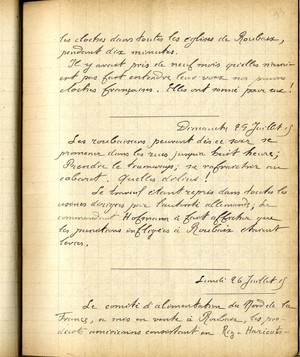 les cloches dans toutes les églises de Roubaix,
pendant dix minutes.
Il y avait près de neuf mois qu'elles n'avaient
pas fait entendre leur voix nos pauvres
cloches françaises. Elles ont sonné pour eux!
Dimanche 25 Juillet 15
Les roubaisiens peuvent dès ce soir se
promener dans les rues jusqu'à huit heures;
Prendre le tramways; se rafraichir au
cabaret. Quelles délices!
Le travail étant repris dans toutes les
usines dirigées par l'autorité allemande; Le
commandant Hofmann a fait afficher que
les punitions infligées à Roubaix étaient
levées.
Lundi 26 Juillet 15
Le comité d'alimentation du Nord de la
France, a mis en vente à Roubaix, les pro-
duits américains consistant en Riz - Haricots -